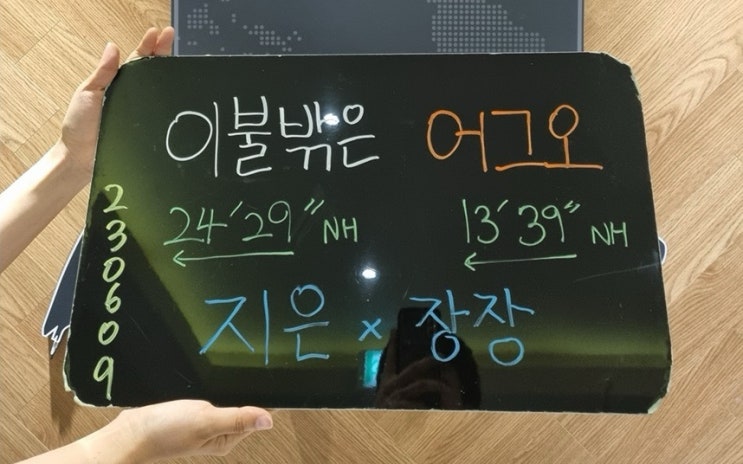 이불밖은 어그오
24′29″ NH 13′39″ NH
지은 x 장장
230609